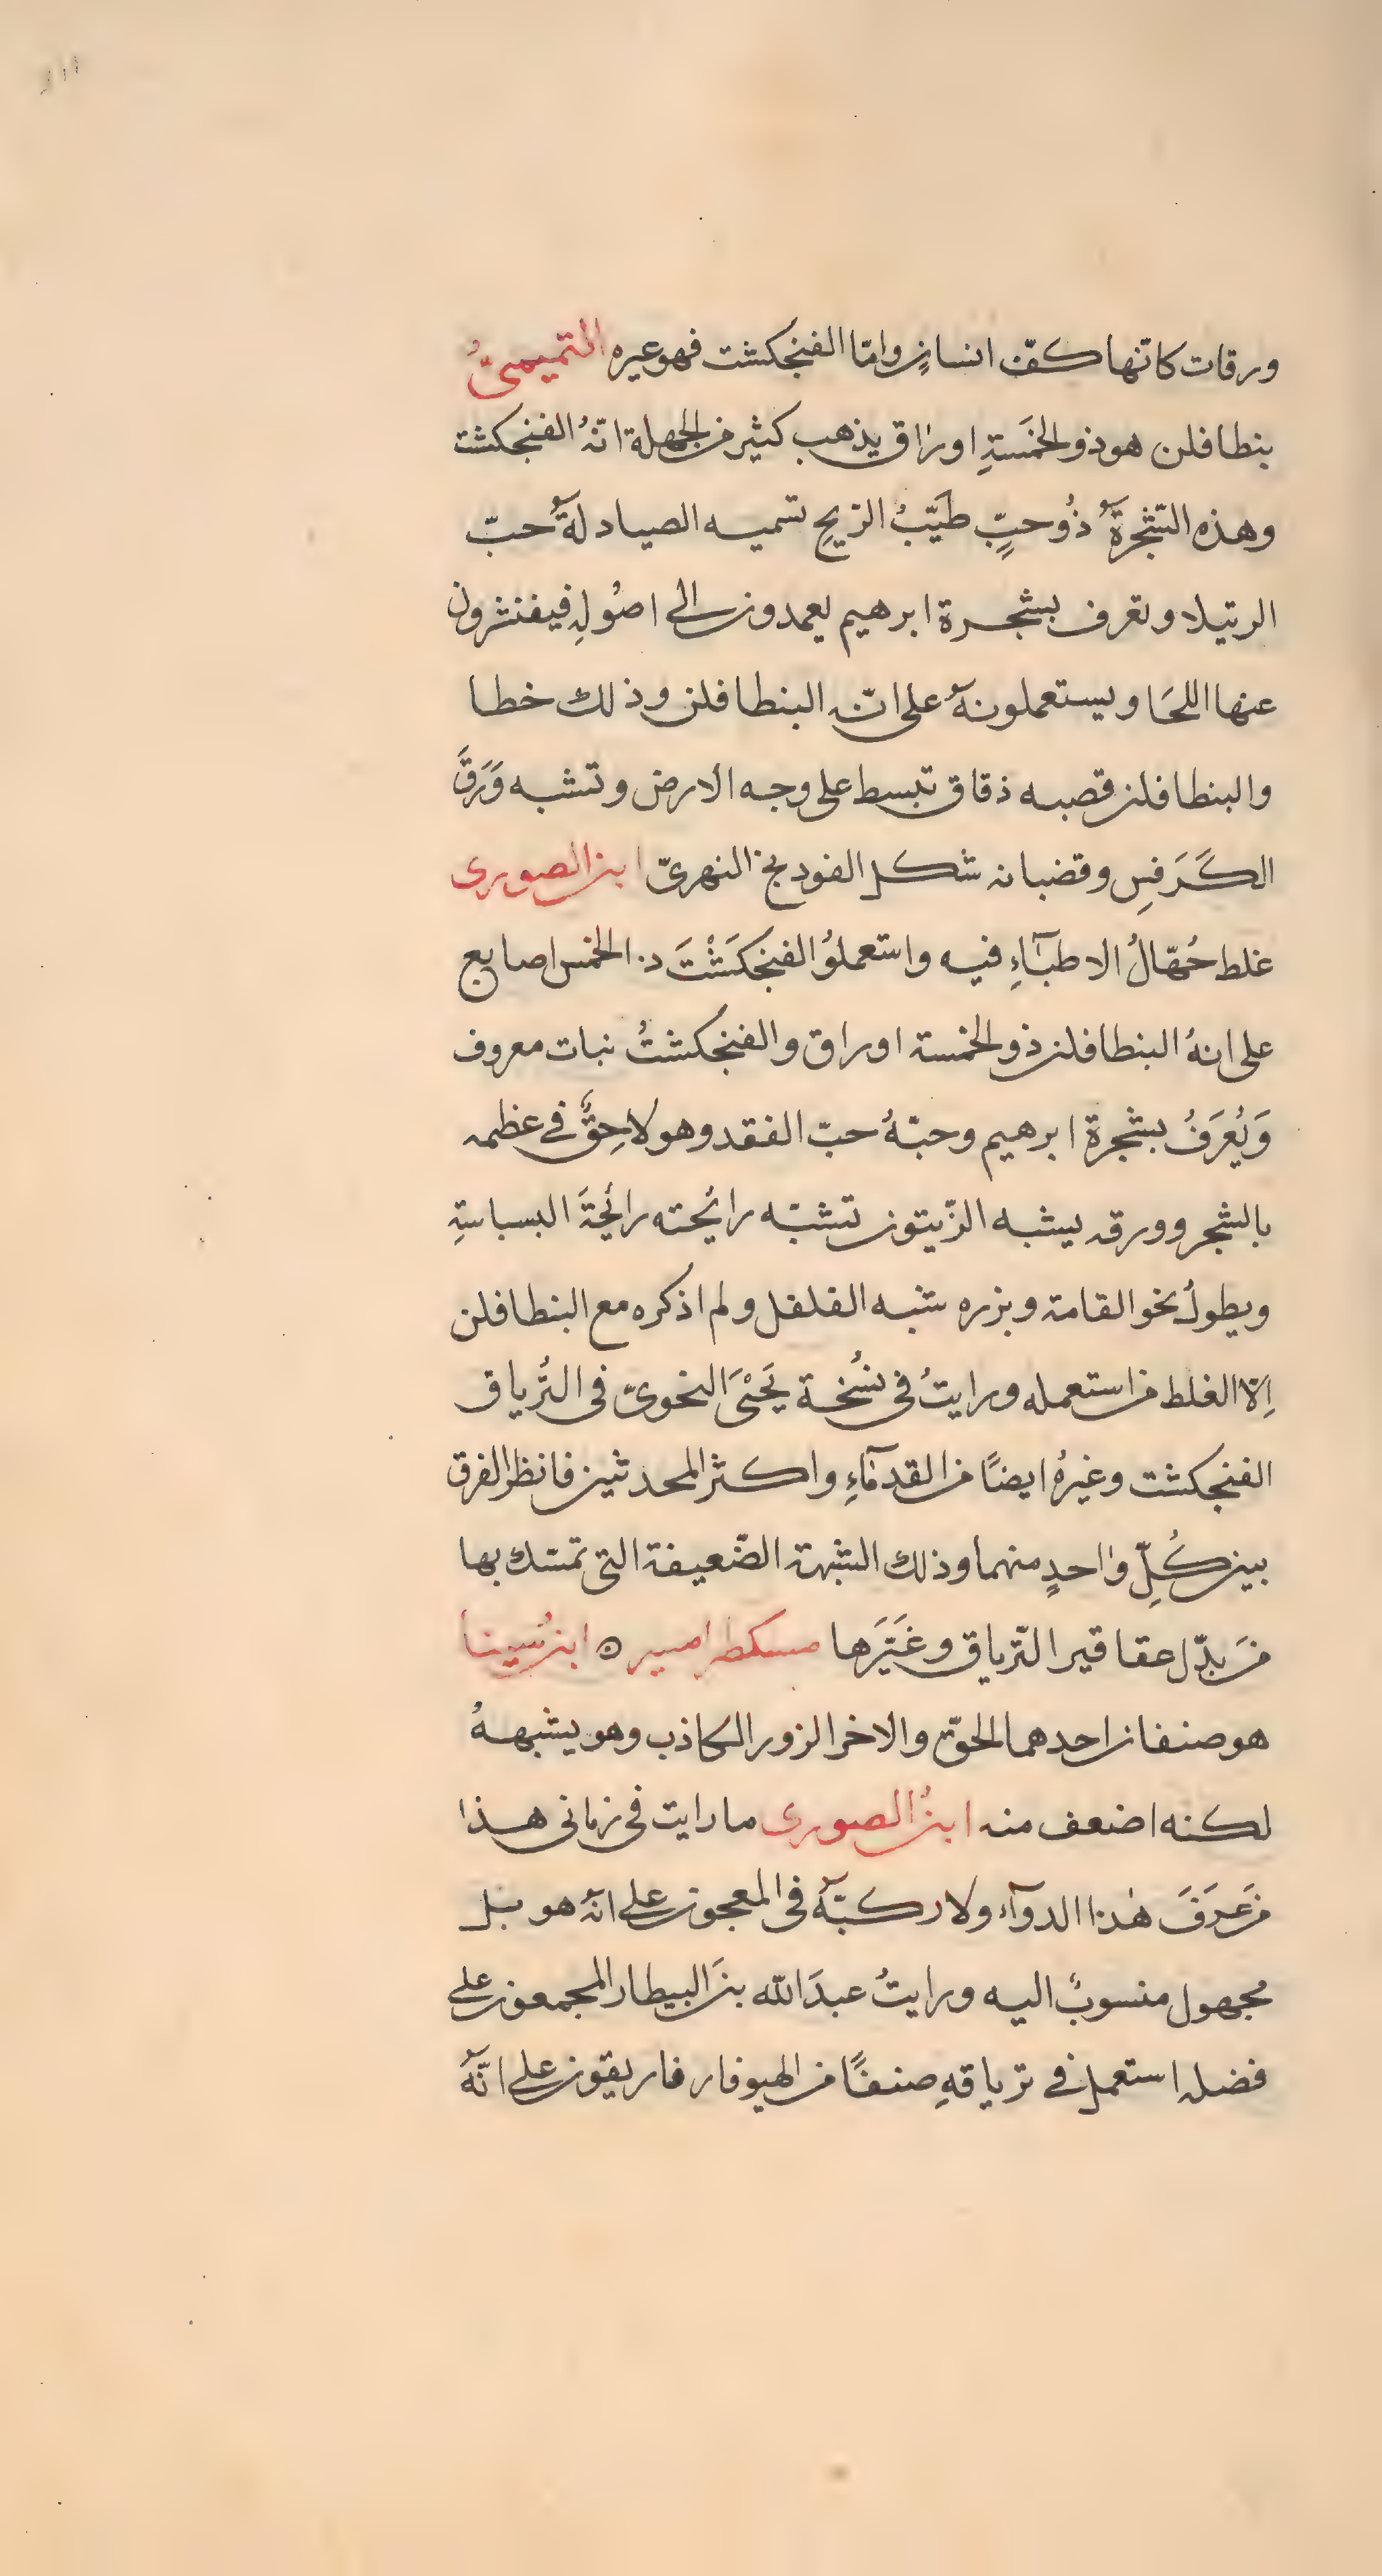 ورقات كانّها كفّ انسانٍ وامّا الفنجكشت فهو غيره التميمىُّ
بنطافلن هو ذو الخَمَسةِ اوراق يذهب كثير من الجهلة انّهُ الفنجكشت
وهذه الشّجرةُ ذُو حبٍّ طيّبُ الريحِ تسميه الصيادلةُ حبّ
الرتيلا وتعرف بشجرة ابرهيم يعمدون الى اصُولِهِ فيقشرون
عنها اللحَا ويستعملونهُ على انّه البنطافلن وذلك خطا
والبنطافلن قصبه دقاق تبسط على وجه الارض وتشبه وَرَقَ
الكَرَفسِ وقضبانه شكل الفودنج النهرىّ ابن الصورى
غلط جُهّالُ الاطبّاءِ فيه واستعملوُ الفنجَكَشْتَ ذا الخمس اصابع
على انهُ البنطافلن ذو الخمسة اوراق والفنجكشتُ نبات معروف
وَيُعرَفُ بشجرة ابرهيم وحبّهُ حبّ الفقد وهو لاحِقٌ فى عظمه
بالشجر وورقه يشبه الزّيتون تشبّه رائحته رائحَةَ البسباسةِ
ويطولُ نحو القامة وبزره شبه الفلفل ولم اذكره مع البنطافلن
اِلّا لغلط من استعمله ورايتُ فى نسُخة يَحيَىَ النحوىّ فى التُرياق
الفنجكشت وغيرهُ ايضًا من القدمآءِ واكثر المحدثين فانظر الفرق
بين كُلِّ واحدٍ منهما وذلك الشبهة الضّعيفة التى تمسّك بها
من بدّل عقاقير التّرياق وغَيّرَها مسكطرامسير ه ابن سُينا
هو صنفان احدهما الحقّ والاخر الزور الكاذب وهو يشبههُ
لكنه اضعف منه ابنُ الصورى ما رايت فى زمانى هذا
من عَرَفَ هٰذا الدوآء ولا ركّبهُ فى المعجون على انهُ هو بل
مجهول منسوبٌ اليه ورايتُ عبدَ الله بنَ البيطار المجمعون على
فضله استعمل فى ترياقهِ صنفًا من الهيوفاريقون على انّهُ